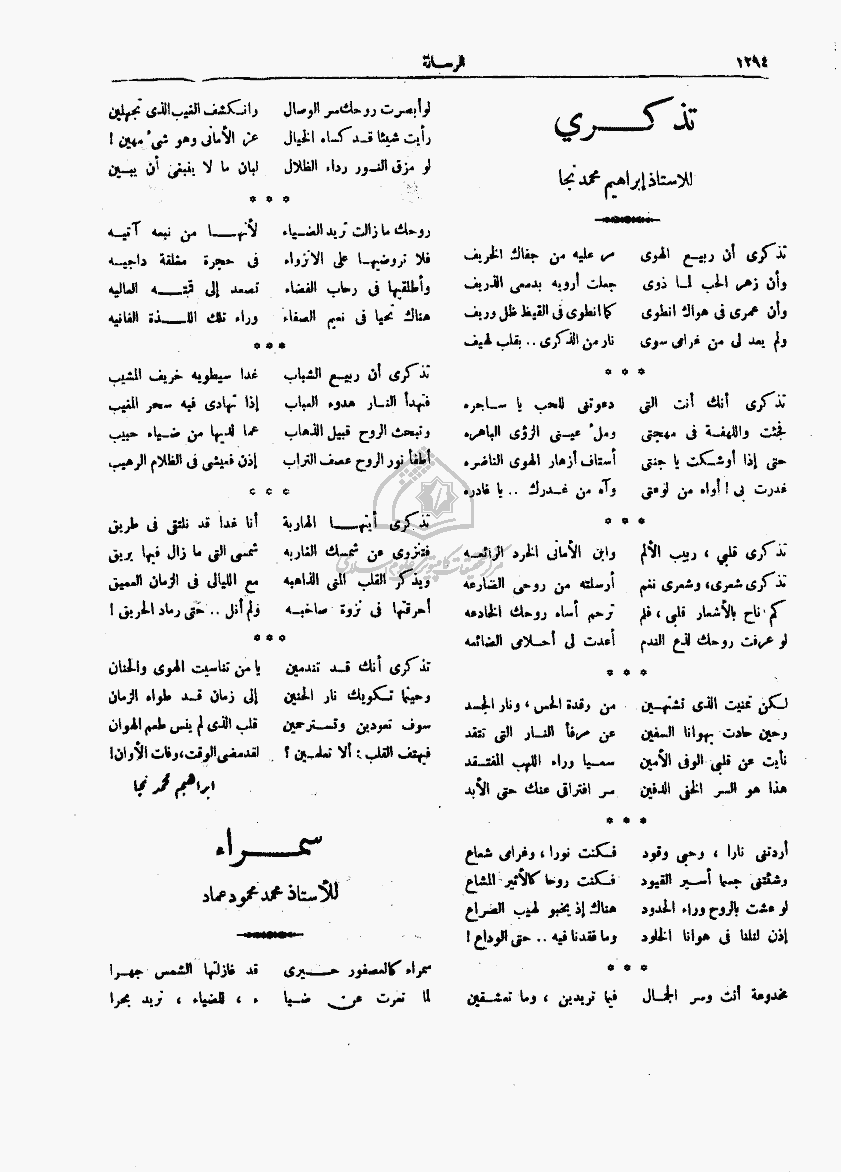 ١٢٩٤ الرسالة
تذكري
للاستاذ إبراهيم محمد نجا
تذكرى أن ربيع الهوى مر عليه من جفاك الخريف
وأن زهر الحب لما ذوى جعلت أرويه بدمعى الذريف
وأن عمرى فى هواك انطوى كما انطوى فى القيظ ظل وريف
ولم يعد لى من غرامى سوى نار من الذكرى .. بقلب لهيف
* * *
تذكرى أنك أنت التى دعوتنى للحب يا ساحره
فجئت واللهفة فى مهجتى وملء عينى الرؤى الباهره
حتى إذا أوشكت يا جنتى أستاف أزهار الهوى الناضره
غدرت بى ! أواه من لوعتى وآه من غدرك .. يا غادره
* * *
تذكرى قلبى ، ربيب الألم وابن الأمانى الخرد الرائعه
تذكرى شعرى، وشعرى نغم أرسلته من روحى الضارعه
كم ناح بالأشعار قلبى ، فلم ترحم أساه روحك الخادعه
لو عرفت روحك لذع الندم أعدت لى أحلامى الضائعه
* * *
لكن تمنيت الذى تشتهين من رقدة الحس ، ونار الجسد
وحين حادت بهوانا السفين عن مرفأ النار التى تتقد
نأيت عن قلبى الوفى الأمين سعيا وراء اللهب المفتقد
هذا هو السر الخفى الدفين سر افتراقى عنك حتى الأبد
* * *
أردتنى نارا ، وحبى وقود فكنت نورا ، وغرامى شعاع
وشئتنى جسما أسير القيود فكنت روحا كالأثير المشاع
لو عشت بالروح وراء الحدود هناك إذ يخبو لهيب الصراع
إذن لنلنا فى هوانا الخلود وما فقدنا فيه .. حتى الوداع !
* * *
مخدوعة أنت وسر الجمال فيما تريدين ، وما تعشقين
لو أبصرت روحك سر الوصال وانكشف الغيب الذى تجهلين
رأيت شيئا قد كساه الخيال عز الأمانى وهو شىء مهين !
لو مزق النور رداء الظلال لبان ما لا ينبغى أن يبين
* * *
روحك ما زالت تريد الضياء لأنها من نبعه آتيه
فلا تروضيها على الانزواء فى حجرة مغلقة داجيه
وأطلقيها فى رحاب الفضاء تصعد إلى قمته العاليه
هناك نحيا فى نعيم الصفاء وراء تلك اللذة الفانيه
* * *
تذكرى أن ربيع الشباب غدا سيطويه خريف المشيب
فتهدأ النار هدوء العباب إذا تهادى فيه سحر المغيب
وتبحث الروح قبيل الذهاب عما لديها من ضياء حبيب
أطفأ نور الروح عصف التراب إذن فعيشى فى الظلام الرهيب
* * *
تذكرى أيتها الهاربة أنا غدا قد نلتقى فى طريق
فتنزوى عن شمسك الغاربه شمسى التى ما زال فيها بريق
ويذكر القلب المنى الذاهبه مع الليالى فى الزمان العميق
أحرقتها فى نزوة صاخبه ولم أنل .. حتى رماد الحريق !
* * *
تذكرى أنك قد تندمين يا من تناسيت الهوى والحنان
وحينما تكويك نار الحنين إلى زمان قد طواه الزمان
سوف تعودين وتسترحمين قلب الذى لم ينس طعم الهوان
فيهتف القلب : ألا تعلمين ؟ لقد مضى الوقت، وفات الأوان!
ابراهيم محمد نجا
سمراء
للأستاذ محمد محمود عماد
سمراء كالعصفور حيرى قد غازلتها الشمس جهرا
لما تعرت عن ضيا ء ، للضياء ، تريد بحرا